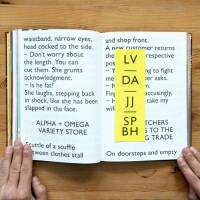 waistband, narrow eyes,
head cocked to the side.
– Don't worry about
the length. You can
cut them. She grunts
acknowledgment.
– Is he fat?
She laughs, stepping back
in shock, like she has been
slapped in the face.
ALPHA + OMEGA
VARIETY STORE
A cuttle of a scuffle
between clothes stall
and shop front.
A new customer returns
the
respectively.
to fight
men
asks.
Finger
accusingly,
hang
TCHERS
S TO THE
NG TRADE
On doorsteps and empty
LV
DA
JJ
SP
BH